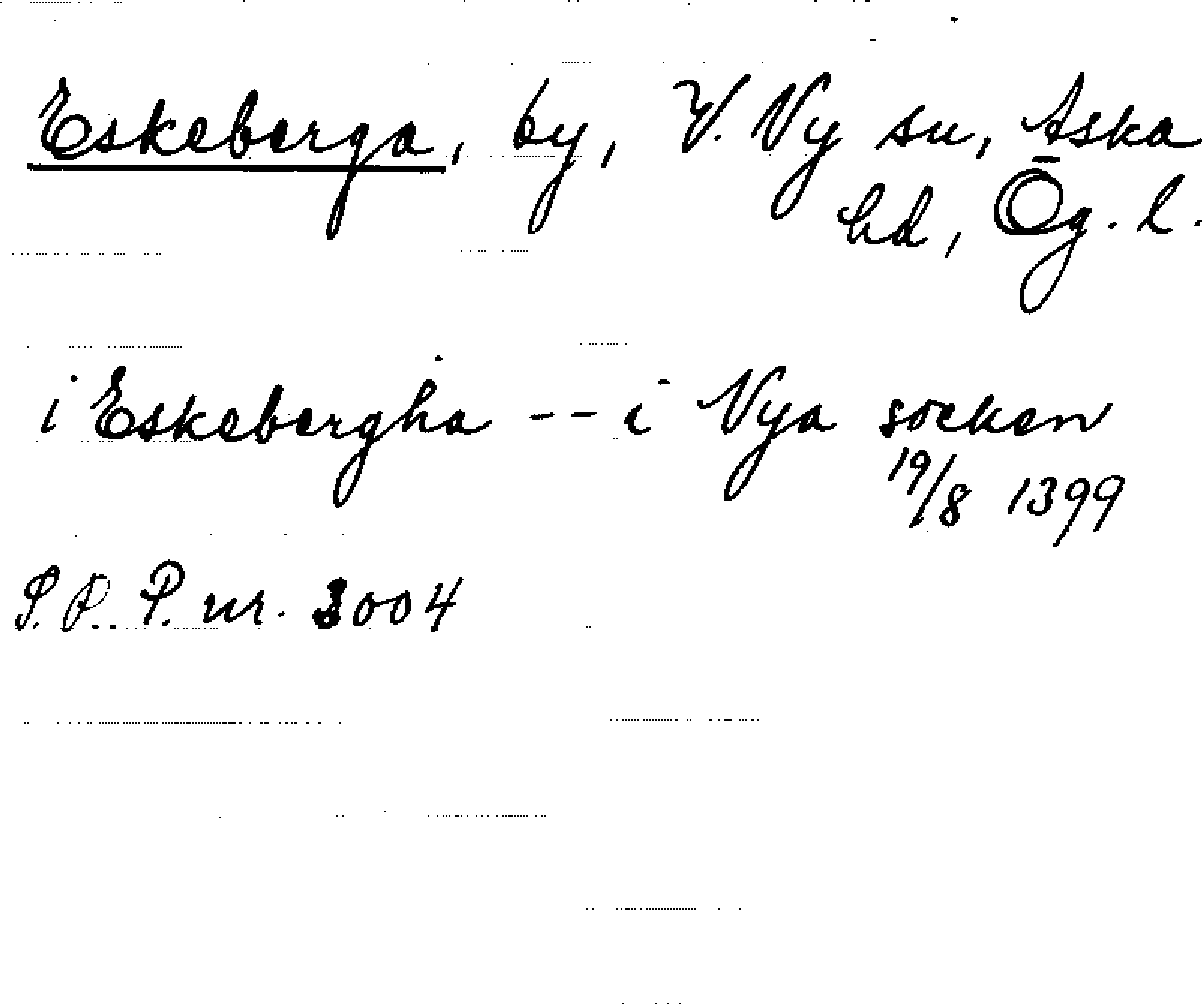 Eskeberga, by, V. Ny sn, Aska
hd, Ög. l.
i Eskebergha -- i Nya socken
19/8 1399
S. R. P. nr. 3004